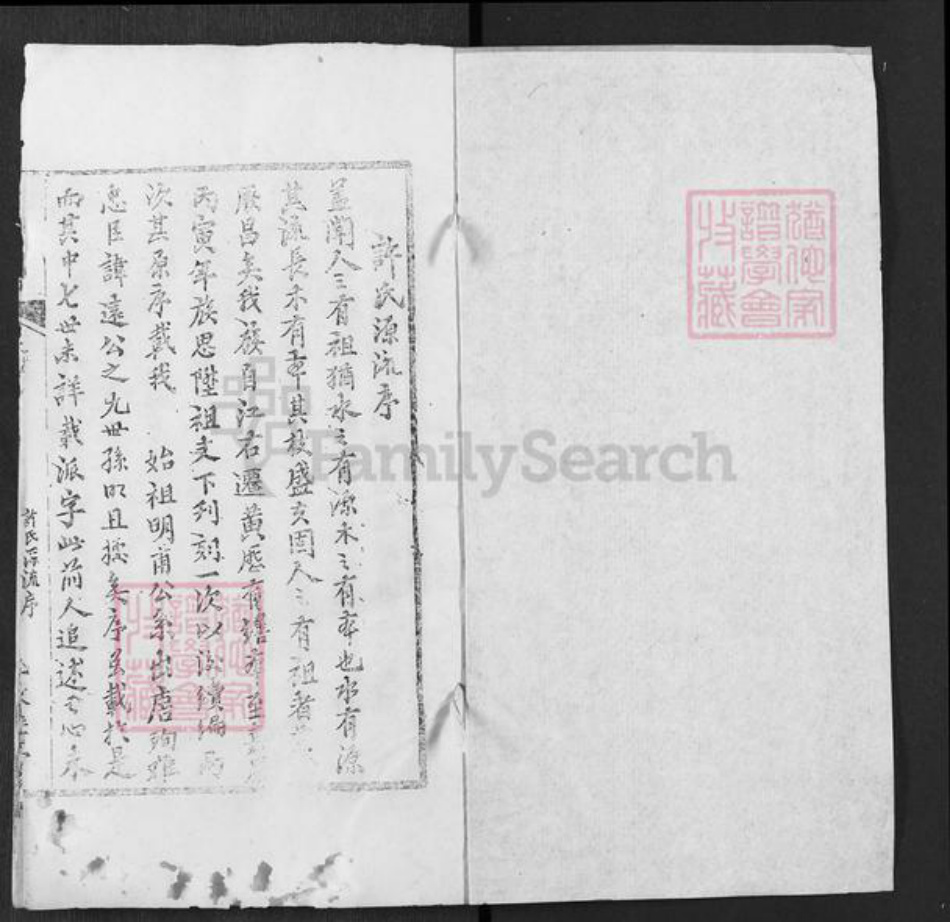 許氏源流序
蓋聞人之有祖猶水之有源木之有本也水有源
其流長木有本其枝盛亥固人之有祖者
厥昌矣我族自江右遷黃歷有譜矣至
丙寅年族思陞祖支下列刻一次以後續編而
次其原序載我 始祖明甫公系出唐殉難
忠臣諱遠公之九世孫明且據矣序並載於是
而其中七世未詳載派字此前人追述之心未
許氏源流序
猶他家
譜學會
收藏
FamilySearch